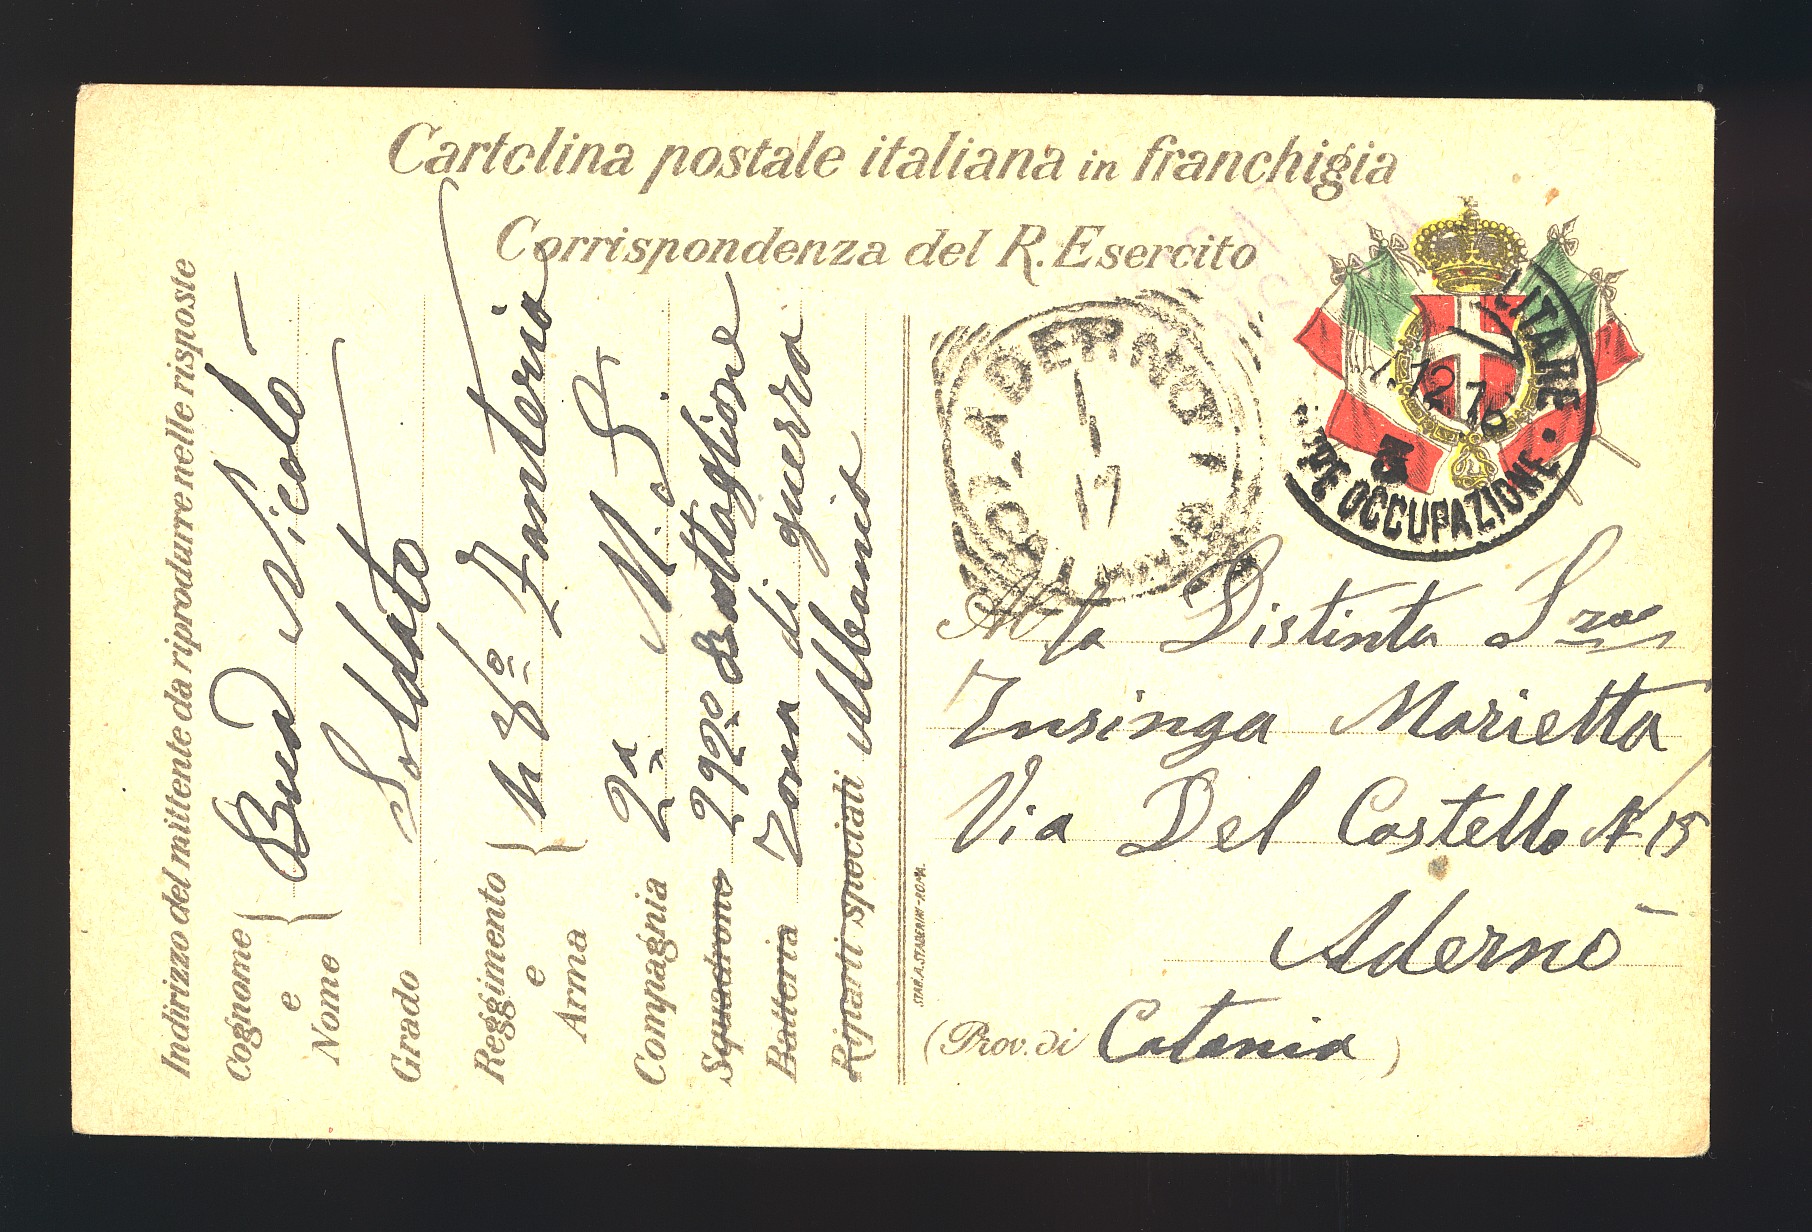 Cartolina postale italiana in franchigia
Corrispondenza del R. Esercito
Indirizzo del mittente da riprodurre nelle risposte
Cognome e Nome { Bua Nicolò
Grado Soldato
Reggimento e Arma { Fanteria
Compagnia 2a M. S.
Squadrone 292o Battaglione
Batteria Zona di guerra
Riparti speciali Albania
STAB. A. STADERINI - ROMA
ADERNO
17
MILITARE
12 16
3
OCCUPAZIONE
Alla Distinta
Insinga Marietta
Via Del Castello N 15
Adernò
(Prov. di Catania)